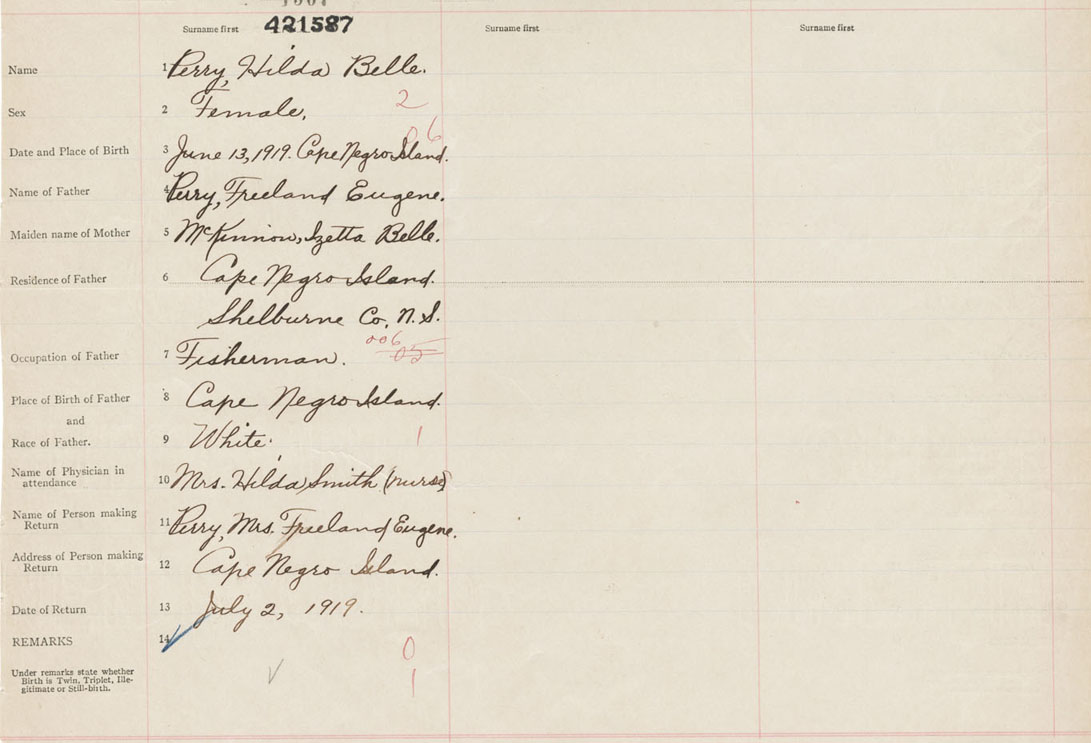 Surname first 421587 Surname first Surname first
Name 1 Perry, Hilda Belle.
Sex 2 Female. 2
06
Date and Place of Birth 3 June 13, 1919. Cape Negro Island.
Name of Father 4 Perry, Freeland Eugene.
Maiden name of Mother 5 McKinnow, Izetta Belle.
Residence of Father 6 Cape Negro Island.
Shelburne Co, N.S.
006
Occupation of Father 7 Fisherman. 05
Place of Birth of Father 8 Cape Negro Island.
and
Race of Father. 9 White. 1
Name of Physician in
attendance 10 Mrs. Hilda Smith (nurse)
Name of Person making
Return 11 Perry, Mrs. Freeland Eugene.
Address of Person making
Return 12 Cape Negro Island.
Date of Return 13 July 2, 1919.
REMARKS 14
0
Under remarks state whether
Birth is Twin, Triplet, Ille-
gitimate or Still-birth. 1